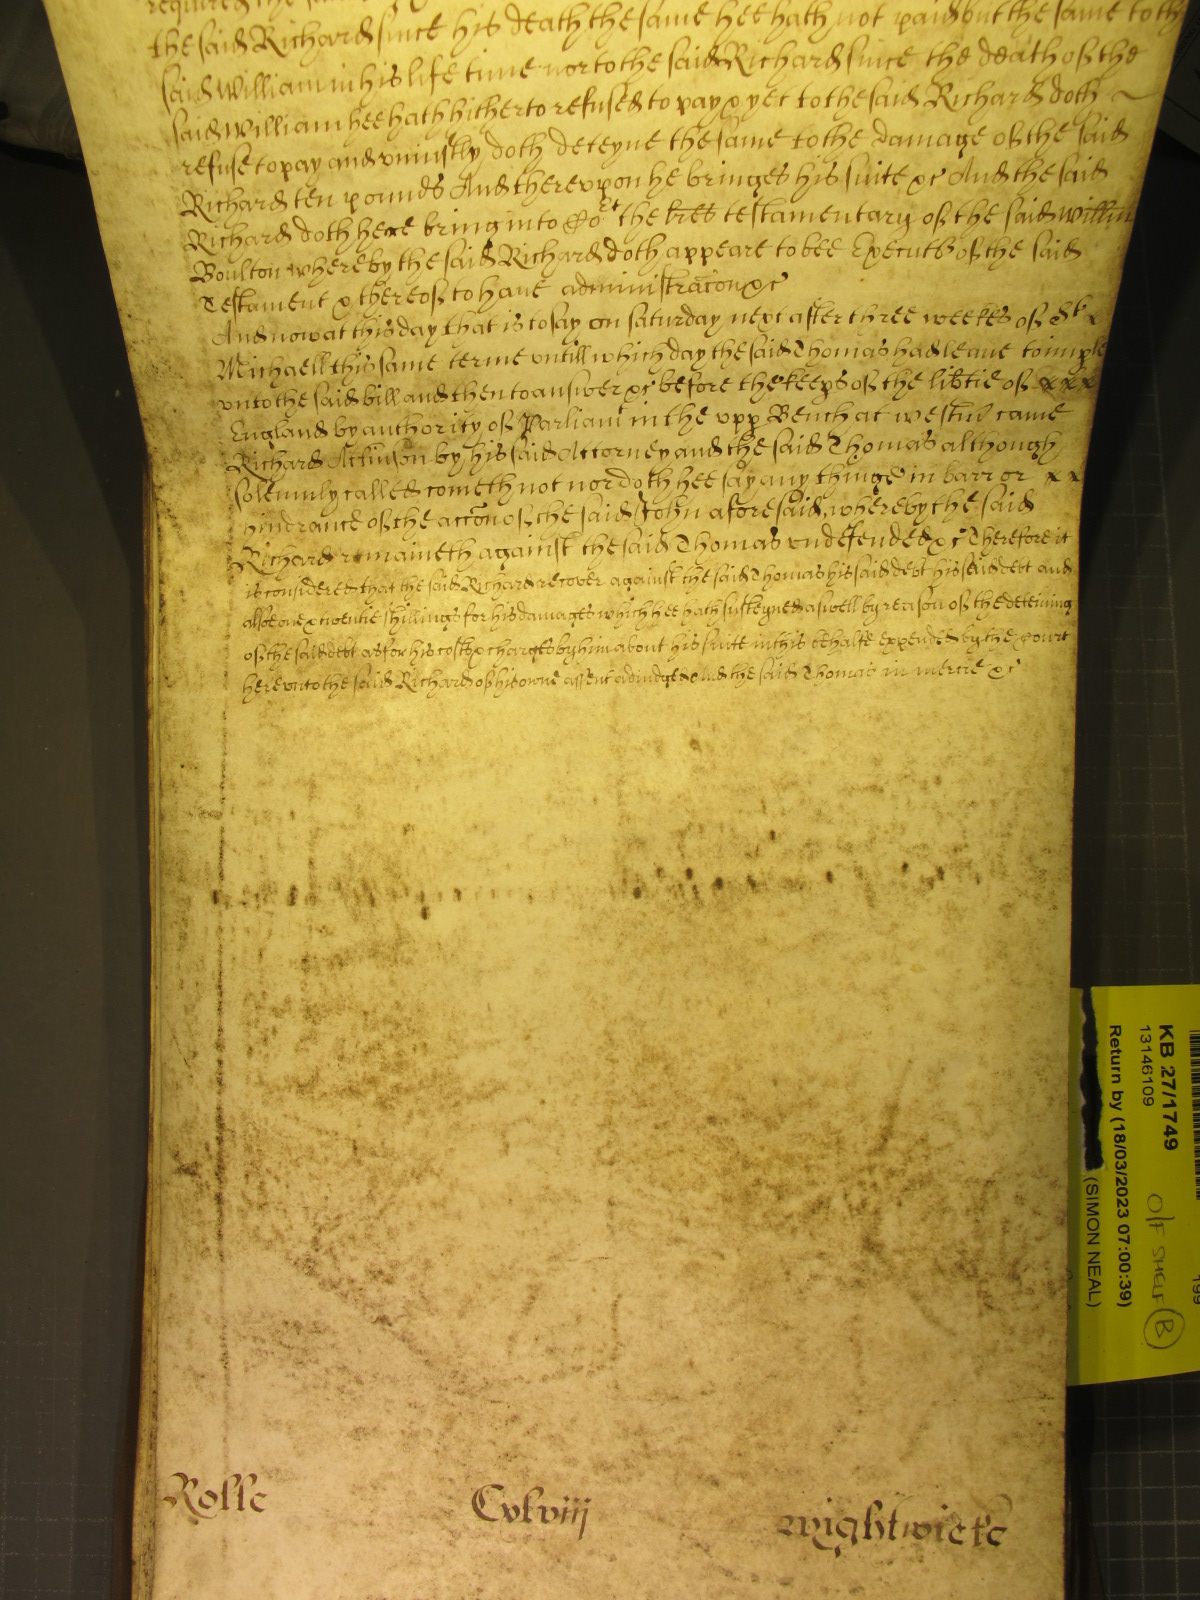 required the same
the said Richard since his death the same hee hath not paid but the same to the
said William in his life time nor to the said Richard since the death of the
said William hee hath hitherto refused to pay & yet to the said Richard doth
refuse to pay and uniustly doth deteyne the same to the damage of the said
Richard ten pounds And thereupon he bringes his suite &c And the said
Richard doth here bring into Cort the lres testamentary of the said Willm
Boulton whereby the said Richard doth appeare to bee Executr of the said
Testament & thereof to have administracon &c
And now at this day that is to say on saturday next after three weekes of St
Michaell this same terme untill which day the said Thomas had leave to imple
unto the said bill and then to answer &c before the keeps of the libtie of xxx
England by authority of Parliamt in the upp Bench at westm came
Richard Atkinson by his said Attorney and the said Thomas although
solemnly called cometh not nor doth hee say any thinge in barr or xx
hindrance of the accon of the said John aforesaid whereby the said
Richard remaineth against the said Thomas undefended &c Therefore it
is considered that the said Richard recover against the said Thomas his said debt his said debt and
alsoe one & twentie shillings for his damages which hee hath susteyned aswell by reason of the deteining
of the said debt as for his costs & charges by him about his suite in this behalfe expended by the Court
here unto the said Richard of his owne assent adiudged And the said Thomas in mercie &c
Rolle Cxlviij Wightwicke
KB 27/1749
13146109
Return by (18/03/2023 07:00:39)
(SIMON NEAL)
O/F SHELF B
199